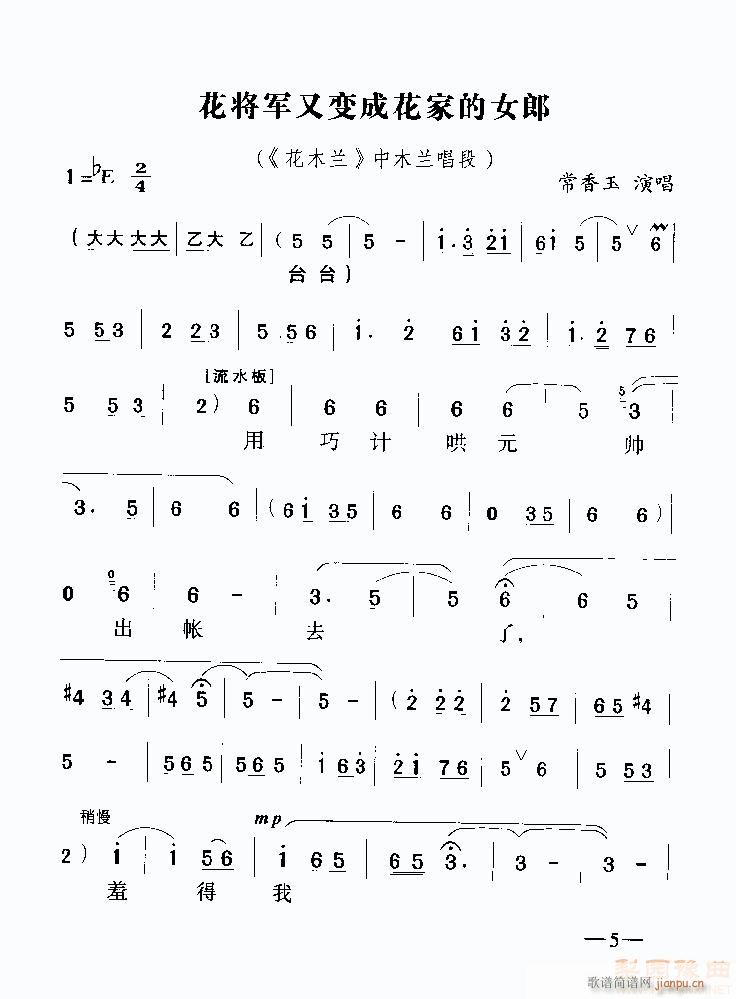 花将军又变成花家的女郎
(《花木兰》中木兰唱段)
1=♭E 2/4
常香玉 演唱
(大大 大大 | 乙大 乙 | (5 5 | 5 - | i. 3 2i | 6i 5 | 5 ∨ 6 |
台台)
5 53 | 2 23 | 5 56 | i. 2 6i 32 | i. 2 76 |
[流水板]
5 53 | 2) 6 | 6 6 | 6 6 | 5 3
用 巧 计 哄 元 帅
3. 5 | 6 6 | (6i 35 | 6 6 | 0 35 | 6 6) |
0 6 | 6 - | 3. 5 | 5 6 | 6 5
出 帐 去 了,
#4 34 | #4 5 | 5 - | 5 - | (2 22 | 2 2 | 2 57 | 65 #4 |
5 - | 565 | 565 | i 63 | 2i 76 | 5 ∨ 6 | 5 5 |
稍慢 mp
2) i | i 56 | i 65 | 65 3. | 3 - | 3 -
羞 得 我
—5—
梨园豫曲
歌谱简谱网
jianpu.cn